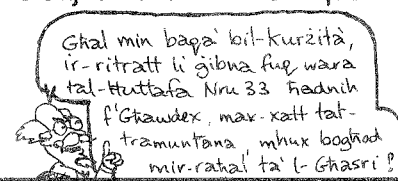 Għal min baqa' bil-kurżità,
ir-ritratt li ġibna fuq wara
tal-Ħuttafa Nru 33 ħadnih
f'Għawdex, max-xatt tat-
tramuntana, mhux bogħod
mir-raħal ta' l-Għasri!